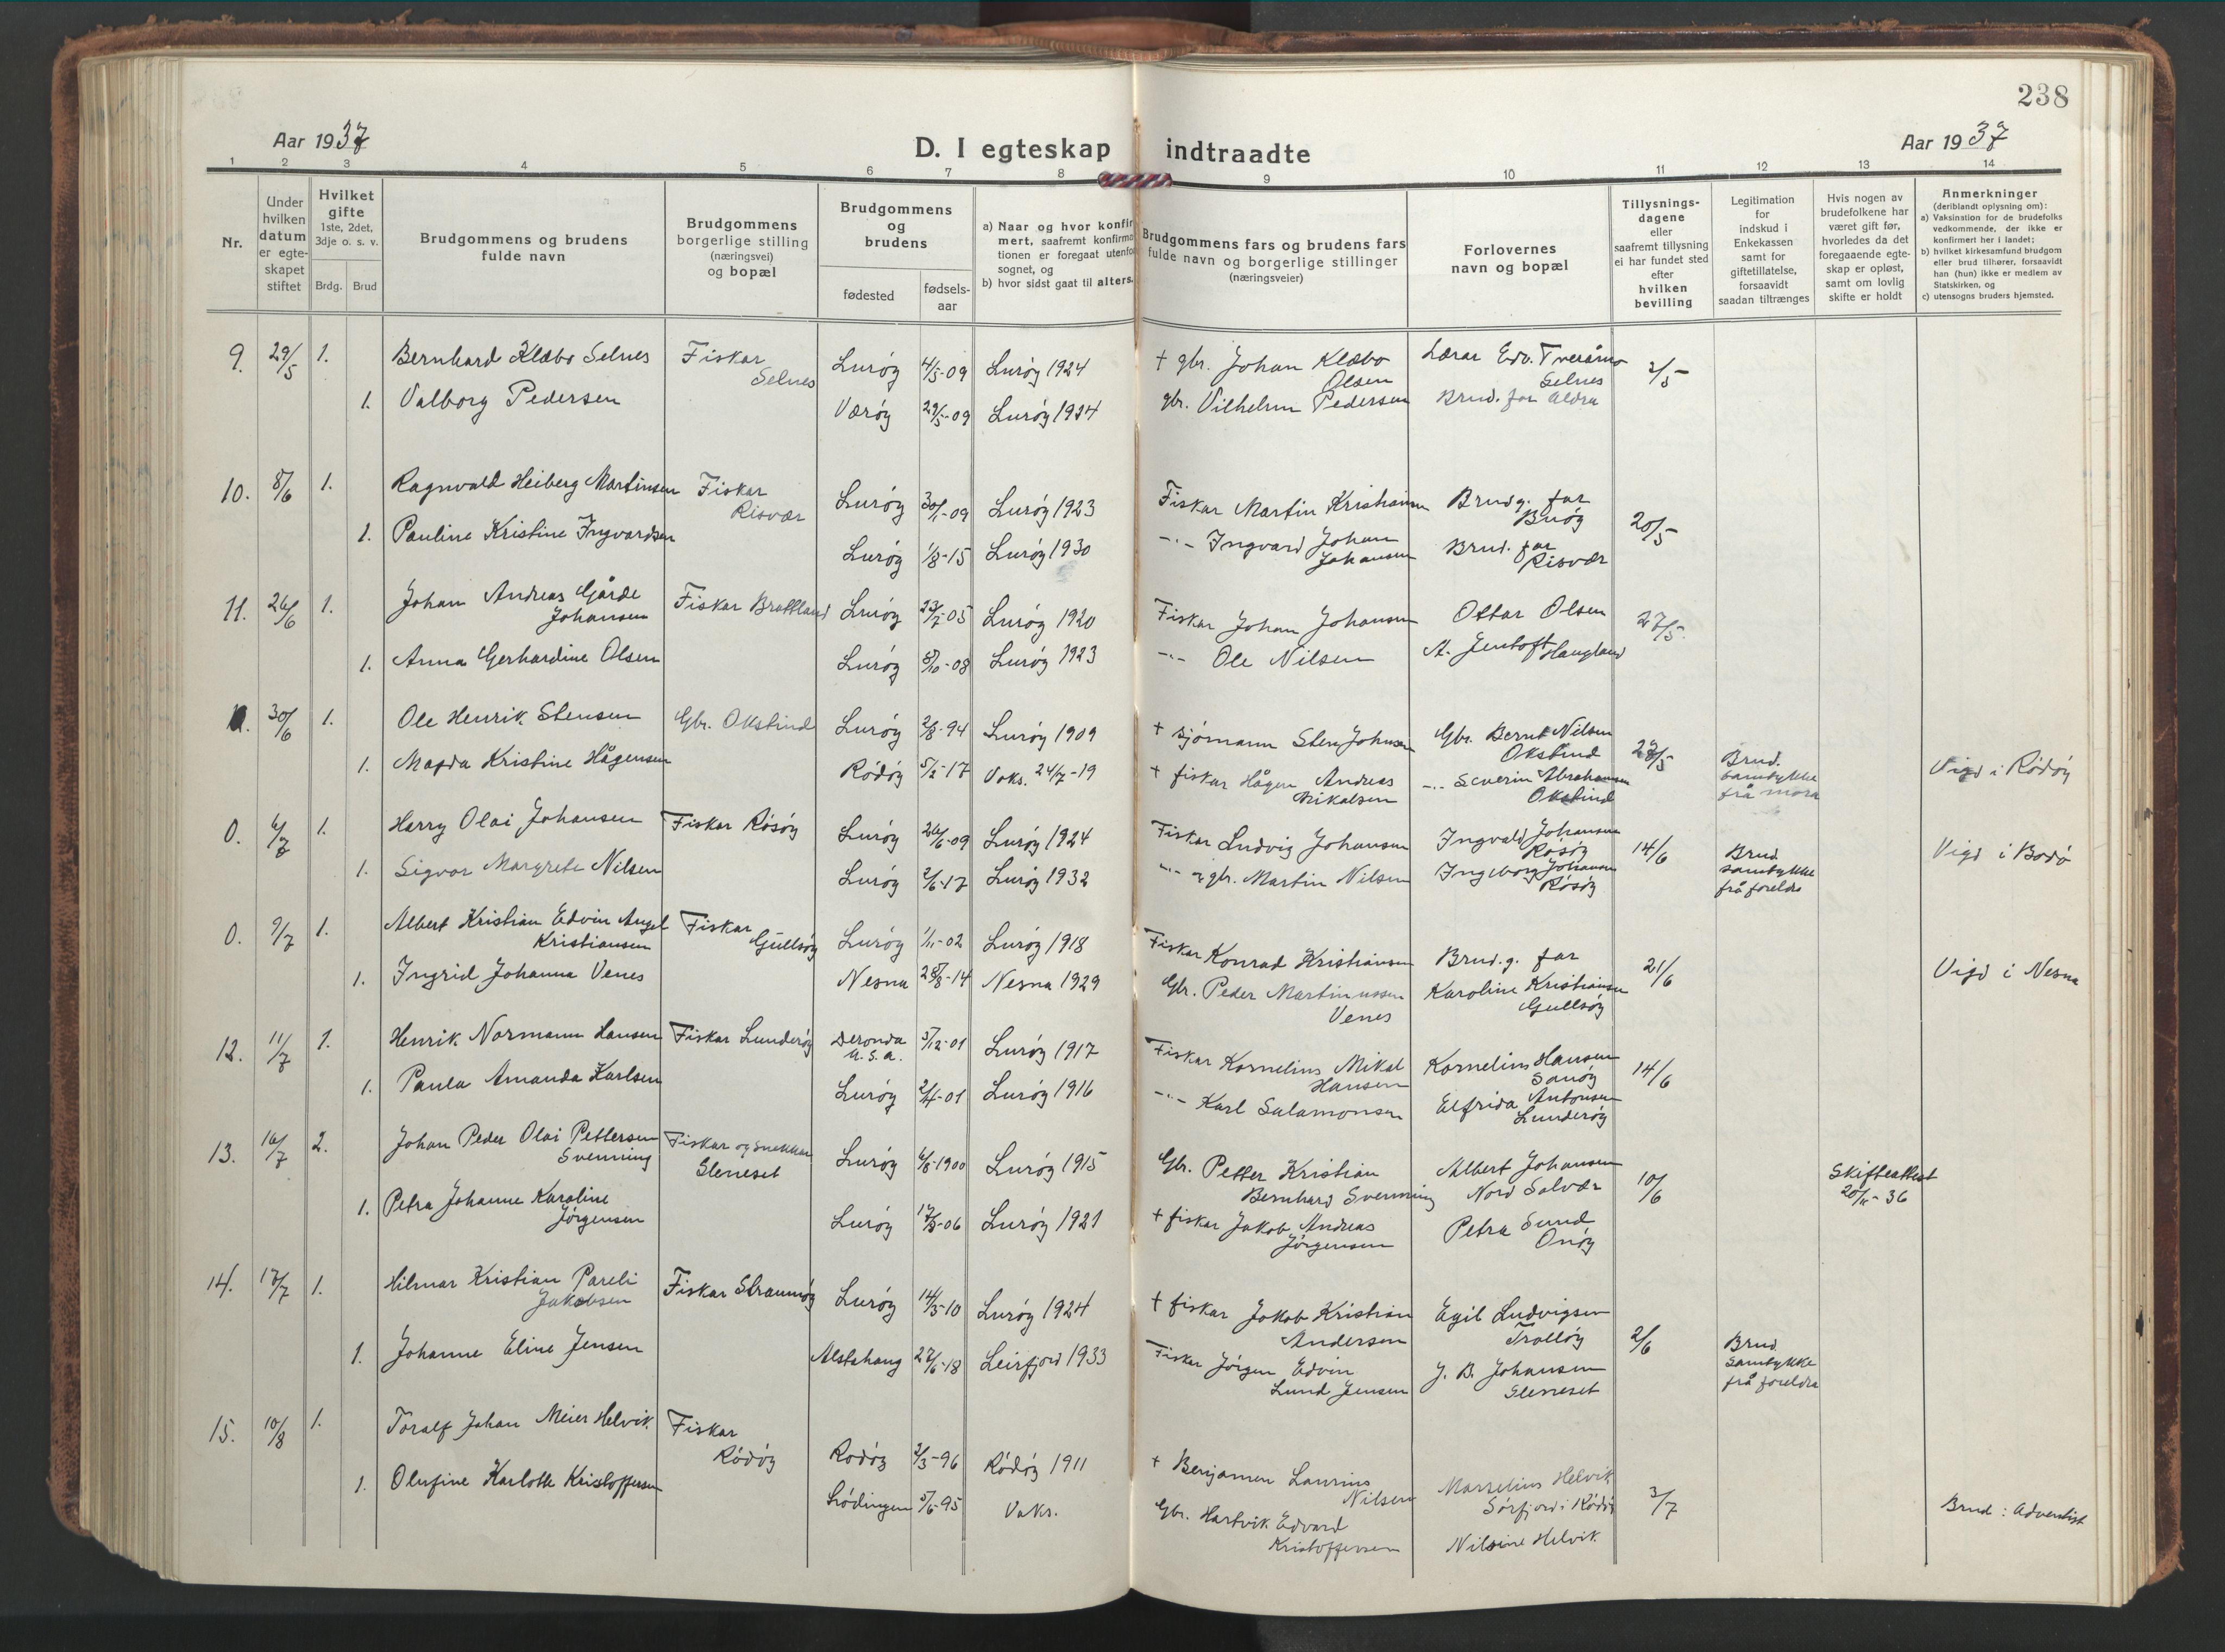 238
Aar 1937
D. I egteskap indtraadte
Aar 1937
1 2 3 4 5 6 7 8 9 10 11 12 13 14
Nr.
Under hvilken datum er egte-skapet stiftet
Hvilket gifte 1ste, 2det, 3dje o. s. v.
Brdg. Brud
Brudgommens og brudens fulde navn
Brudgommens borgerlige stilling (næringsvei) og bopæl
Brudgommens og brudens
fødested
fødsels-aar
a) Naar og hvor konfir
mert, saafremt konfirma
tionen er foregaat utenfo
sognet, og
b) hvor sidst gaat til alters.
Brudgommens fars og brudens fars
fulde navn og borgerlige stillinger
(næringsveier)
Forlovernes
navn og bopæl
Tillysnings-dagene eller saafremt tillysning ei har fundet sted efter hvilken bevilling
Legitimation for indskud i Enkekassen samt for giftetillatelse, forsaavidt saadan tiltrænges
Hvis nogen av brudefolkene har været gift før, hvorledes da det foregaaende egte-skap er opløst, samt om lovlig skifte er holdt
Anmerkninger
(deriblandt oplysning om):
a) Vaksination for de brudefolks vedkommende, der ikke er konfirmert her i landet;
b) hvilket kirkesamfund brudgom eller brud tilhører, forsaavidt han (hun) ikke er medlem av Statskirken, og
c) utensogns bruders hjemsted.
9. 29/5 1. Bernhard Klæbo Selnes Fiskar Selnes Lurøy 4/5-09 Lurøy 1924 + gbr. Johan Klæbo Olsen Lærar Edv. Tveråmo Selnes 2/5
1. Valborg Pedersen Værøy 29/5-09 Lurøy 1924 gbr. Vilhelm Pedersen Brud. far Aldra
10. 8/6 1. Ragnvald Heiberg Martinsen Fiskar Risvær Lurøy 30/1-09 Lurøy 1923 Fiskar Martin Kristiansen Brudg. far Buøy 20/5
1. Pauline Kristine Ingvardsen Lurøy 1/8-15 Lurøy 1930 -"- Ingvard Johan Johansen Brud. far Risvær
11. 26/6 1. Johan Andreas Gårde Johansen Fiskar Brattland Lurøy 23/7-05 Lurøy 1920 Fiskar Johan Johansen Ottar Olsen 27/5
1. Anna Gerhardine Olsen Lurøy 8/10-08 Lurøy 1923 -"- Ole Nilsen A. Jentoft Haugland
30/6 1. Ole Henrik Stensen Gbr. Okstind Lurøy 2/8-94 Lurøy 1909 + sjømann Sten Johnsen Gbr. Bernt Nilsen Okstind 28/5 Brud. samtykke frå mora
1. Magda Kristine Hågensen Rødøy 5/2-17 Vaks. 24/7-19 + fiskar Hågen Andreas Mikalsen -"- Severin Abrahamsen Okstind Vigd i Rødøy
0. 6/7 1. Harry Olai Johansen Fiskar Røsøy Lurøy 26/6-09 Lurøy 1924 Fiskar Ludvig Johansen Ingvald Johansen Røsøy 14/6 Brud samtykke frå foreldre Vigd i Bodø
1. Sigvor Margrete Nilsen Lurøy 2/6-17 Lurøy 1932 -"- gbr. Martin Nilsen Ingeborg Johansen Røsøy
0. 9/7 1. Albert Kristian Edvin Angel Kristiansen Fiskar Gullsøy Lurøy 1/11-02 Lurøy 1918 Fiskar Konrad Kristiansen Brud.g. far 21/6 Vigd i Nesna
1. Ingrid Johanna Venes Nesna 28/8-14 Nesna 1929 Gbr. Peder Martinussen Venes Karoline Kristiansen Gullsøy
12. 11/7 1. Henrik Normann Hansen Fiskar Lunderøy Deronda U.S.A. 5/12-01 Lurøy 1917 Fiskar Kornelius Mikal Hansen Kornelius Hansen Sanøy 14/6
1. Paula Amanda Karlsen Lurøy 2/4-01 Lurøy 1916 -"- Karl Salamonsen Elfrida Antonsen Lunderøy
13. 16/7 2. Johan Peder Olai Pettersen Svenning Fiskar og snekkar Sleneset Lurøy 6/8-1900 Lurøy 1915 Gbr. Petter Kristian Bernhard Svenning Albert Johansen Nord Solvær 10/6 Skifteattest 20/11-36
1. Petra Johanne Karoline Jørgensen Lurøy 17/3-06 Lurøy 1921 + fiskar Jakob Andreas Jørgensen Petra Sund Onøy
14. 17/7 1. Hilmar Kristian Pareli Jakobsen Fiskar Straumøy Lurøy 14/3-10 Lurøy 1924 + fiskar Jakob Kristian Andersen Egil Ludvigsen Trolløy 2/6 Brud samtykke frå foreldre
1. Johanne Eline Jensen Alstahaug 27/6-18 Leirfjord 1933 Fiskar Jørgen Edvin Lund Jensen J. B. Johansen Sleneset
15. 10/8 1. Toralf Johan Meier Helvik Fiskar Rødøy Rødøy 2/3-96 Rødøy 1911 + Benjamen Laurins Nilsen Marselius Helvik Sørfjord i Rødøy 3/7
1. Olufine Karlotte Kristoffersen Lødingen 5/6-95 Vaks. Gbr. Hartvik Edvard Kristoffersen Nilsine Helvik Brud : Adventist